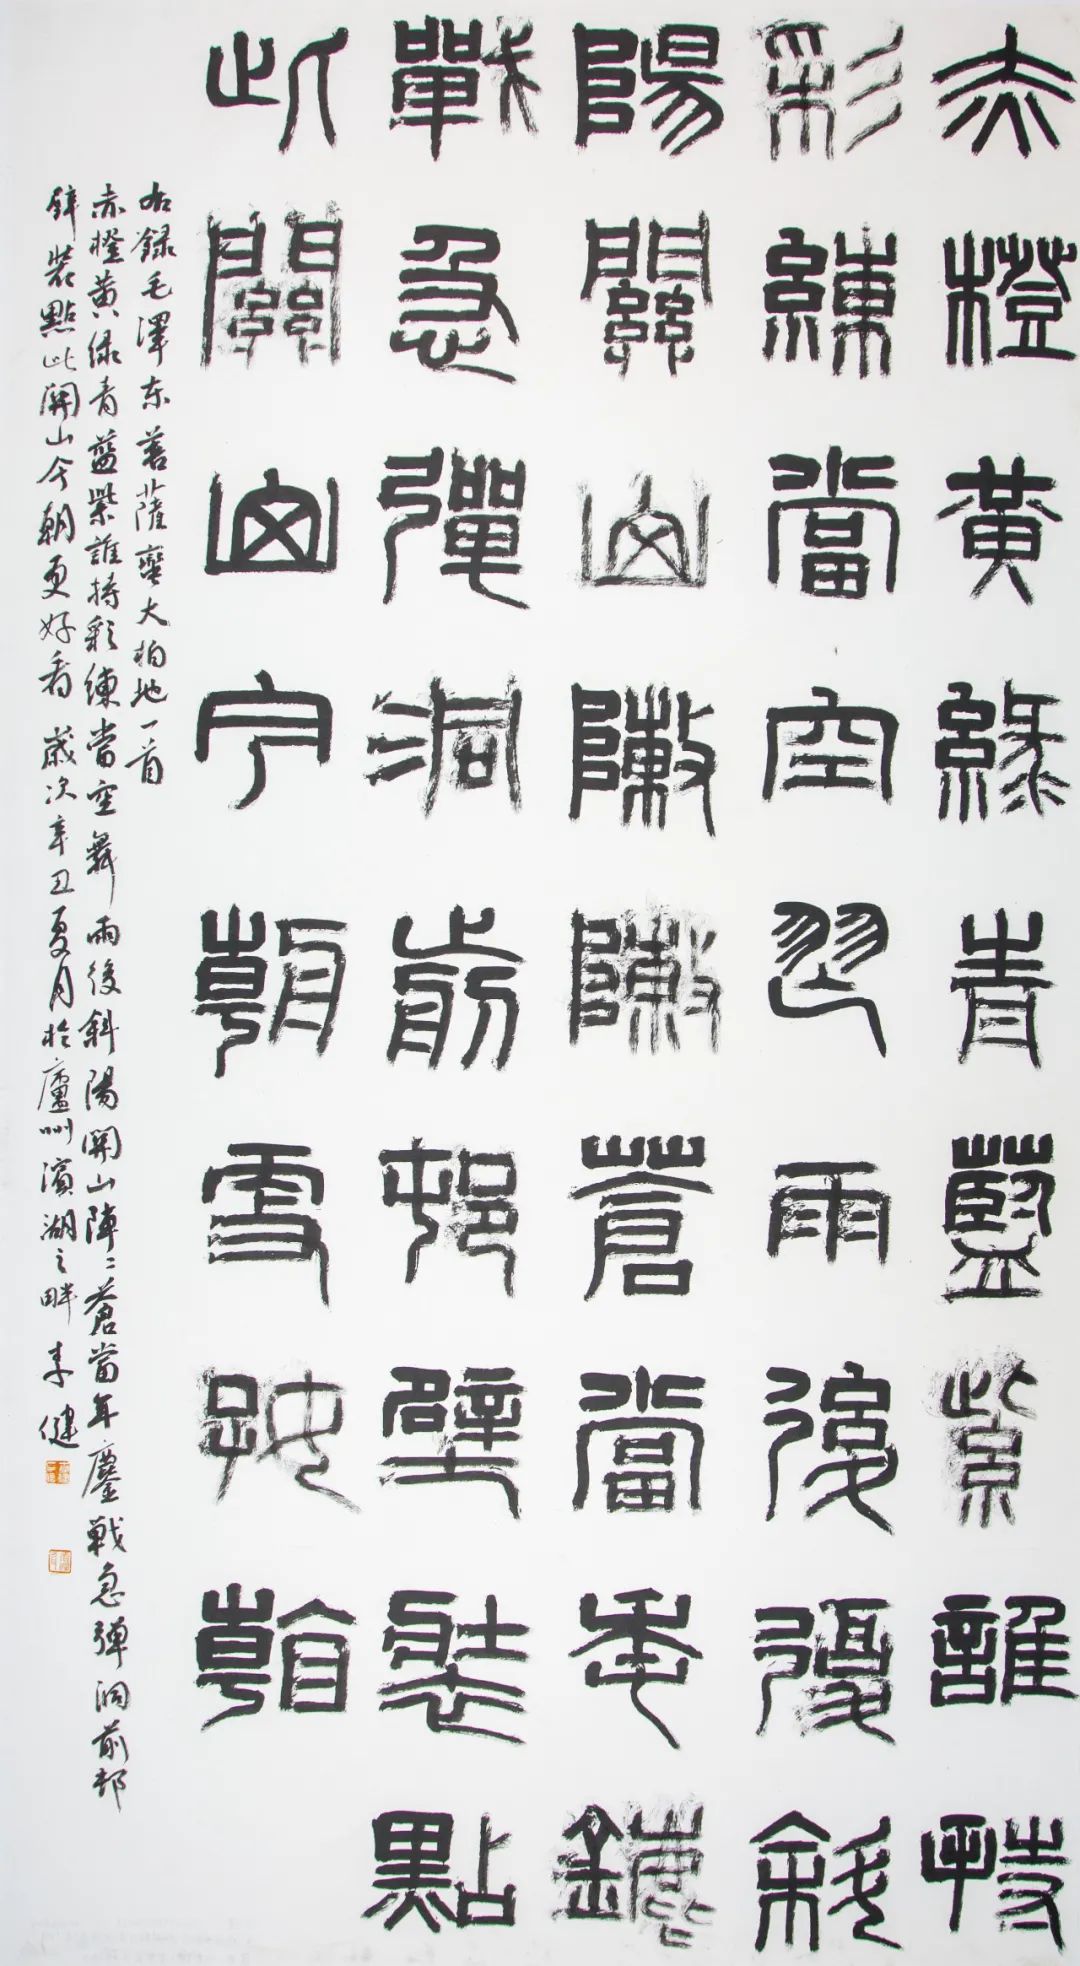 赤橙黃綠青藍紫誰持
彩練當空舞雨後復斜
陽關山陣陣蒼當年鏖
戰急彈洞前邨壁裝點
此關山今朝雪好看
右錄毛澤东菩薩蠻大柏地一首
赤橙黃綠青藍紫誰持彩練當空舞雨後斜陽關山陣〻蒼當年鏖戰急彈洞前邨
壁裝點此關山今朝更好看歲次辛丑夏月於廬州濱湖之畔李健